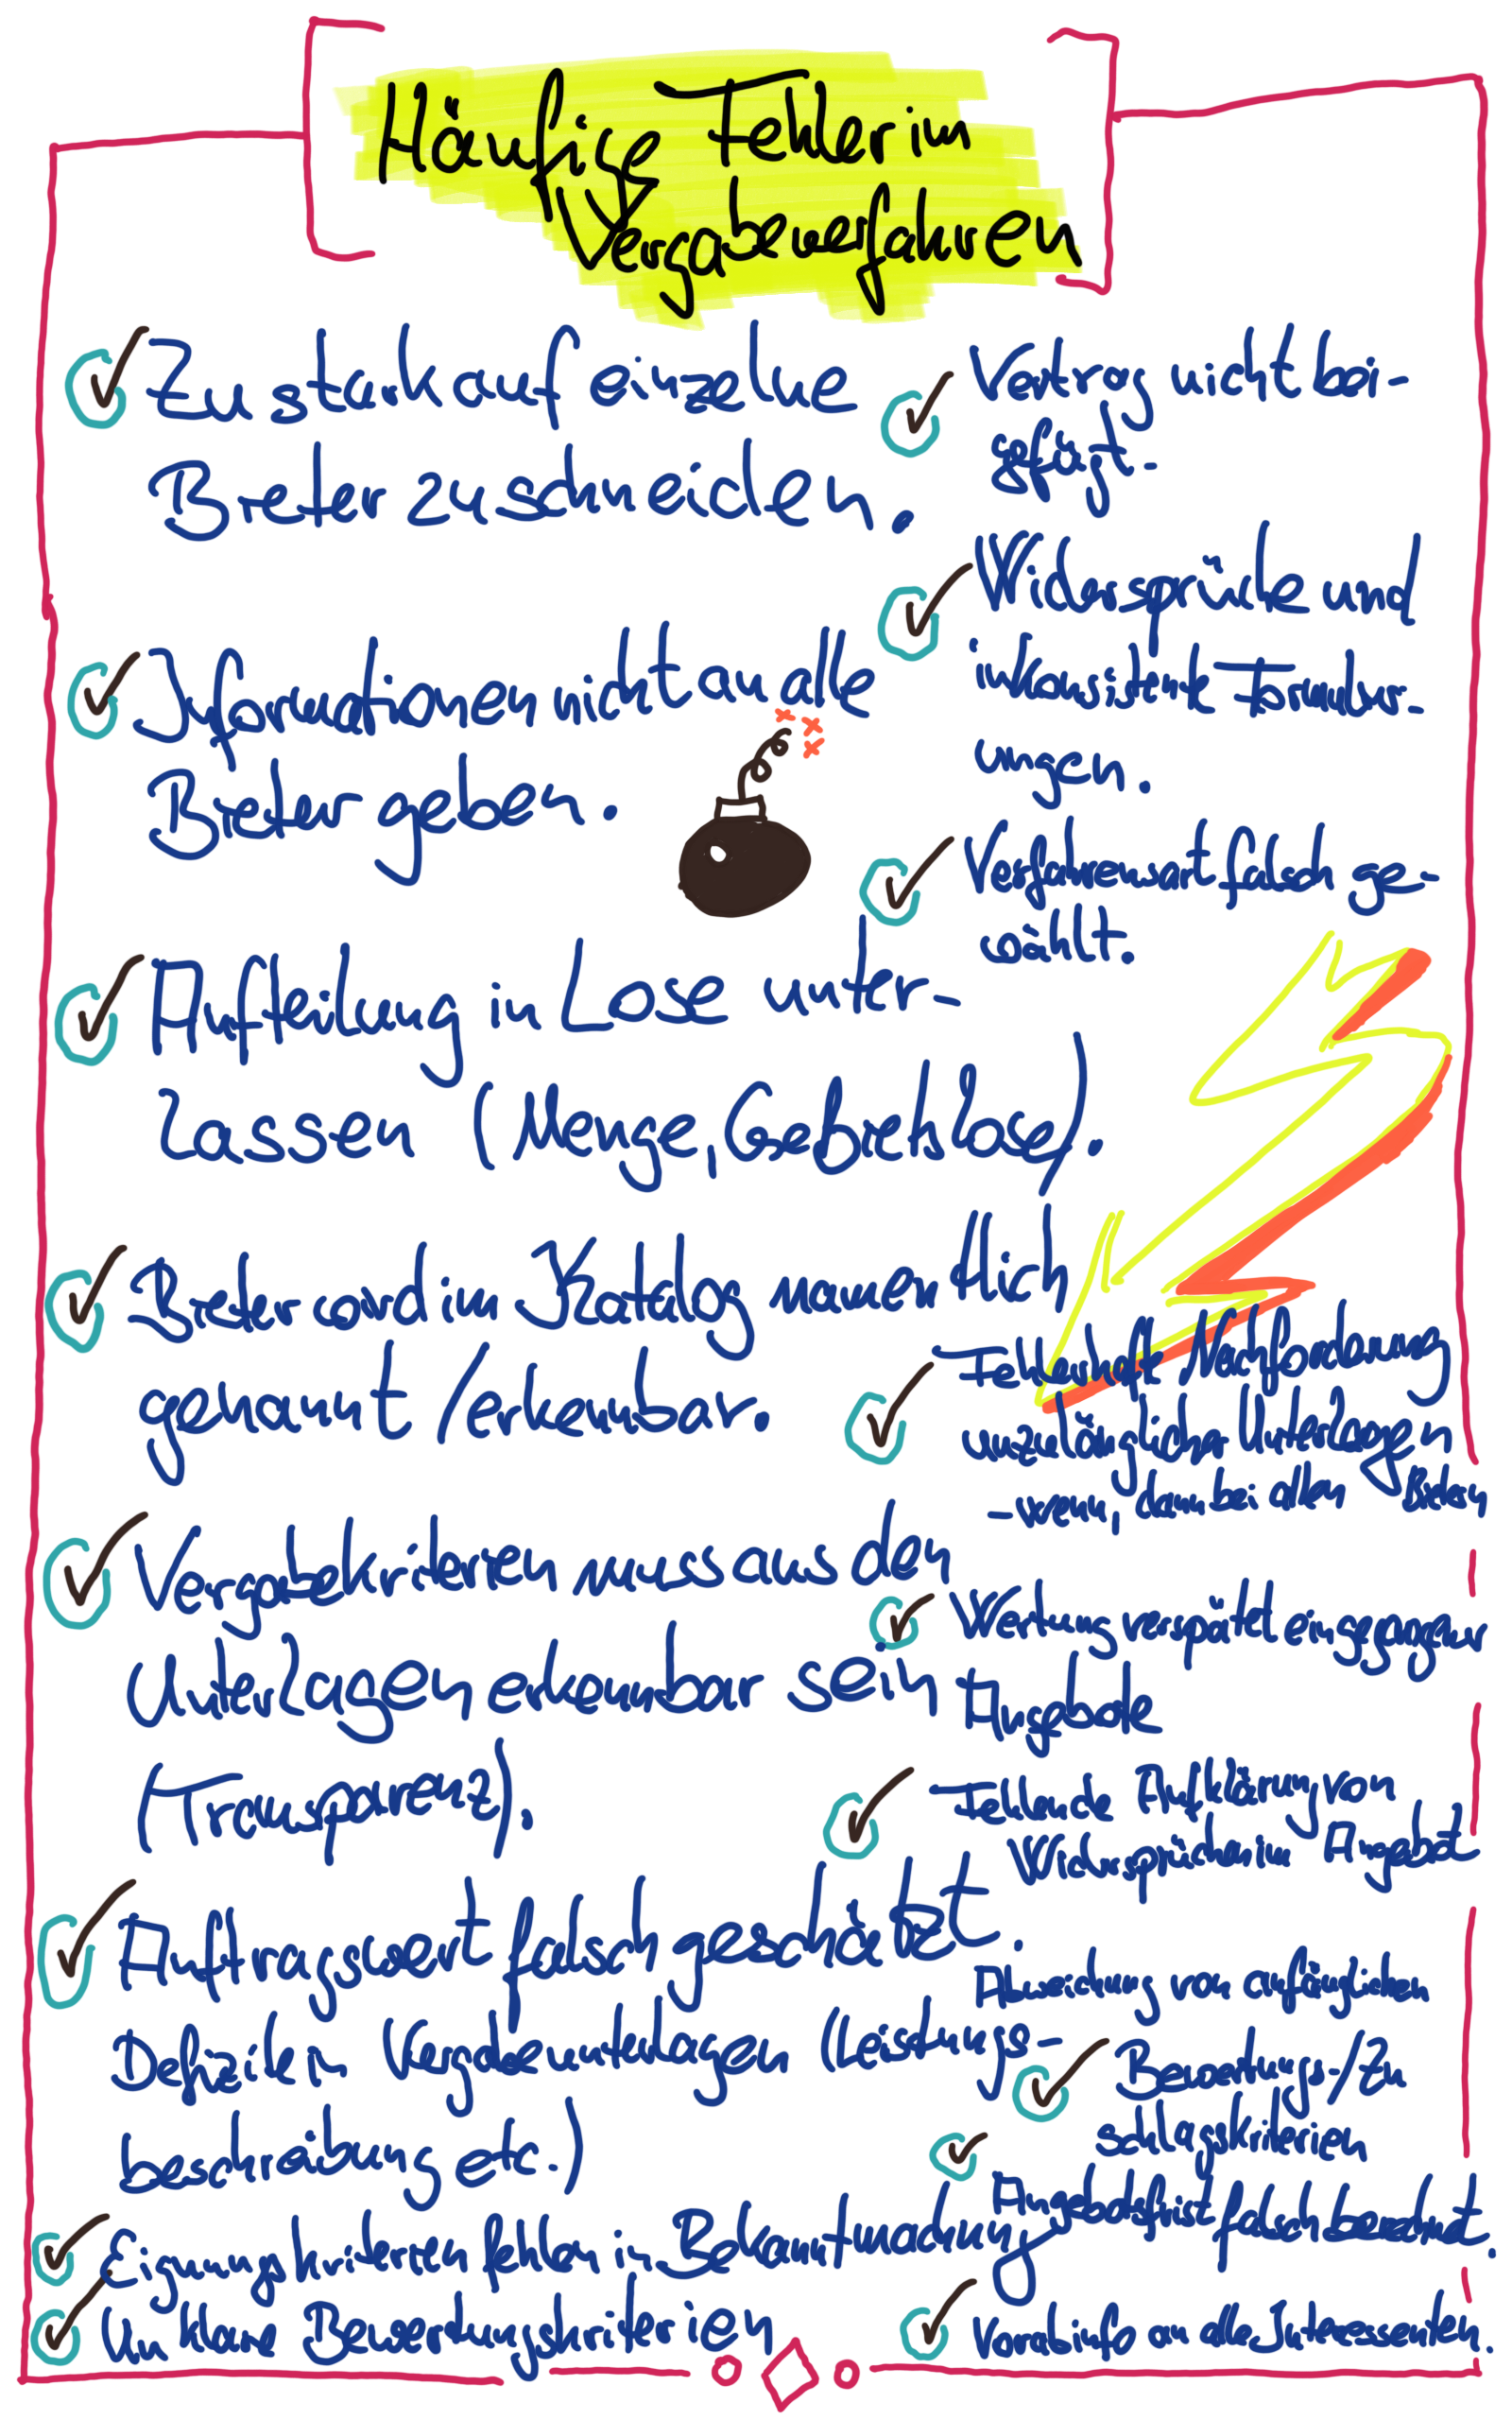 Häufige Fehler im
Vergabeverfahren
Zu stark auf einzelne
Bieter zuschneiden.
Informationen nicht an alle
Bieter geben.
Aufteilung in Lose unter-
lassen (Menge, Gebietslose).
Bieter wird im Katalog namentlich
genannt / erkennbar.
Vergabekriterien muss aus den
Unterlagen erkennbar sein
(Transparenz).
Auftragswert falsch geschätzt.
Defizite in Vergabeunterlagen (Leistungs-
beschreibung etc.)
Eignungskriterien fehlen in Bekanntmachung
Unklare Bewertungskriterien
Vertrag nicht bei-
gefügt.
Widersprüche und
inkonsistente Formulier-
ungen.
Verfahrensart falsch ge-
wählt.
Fehlerhafte Nachforderung
unzulänglicher Unterlagen
- wenn, dann bei allen Bietern
Wertung verspätet eingegangener
Angebote
Fehlende Aufklärung von
Widersprüchen im Angebot
Abweichung von anfänglichen
Bewertungs-/Zu
schlagskriterien
Angebotsfrist falsch berechnet.
Vorabinfo an alle Interessenten.